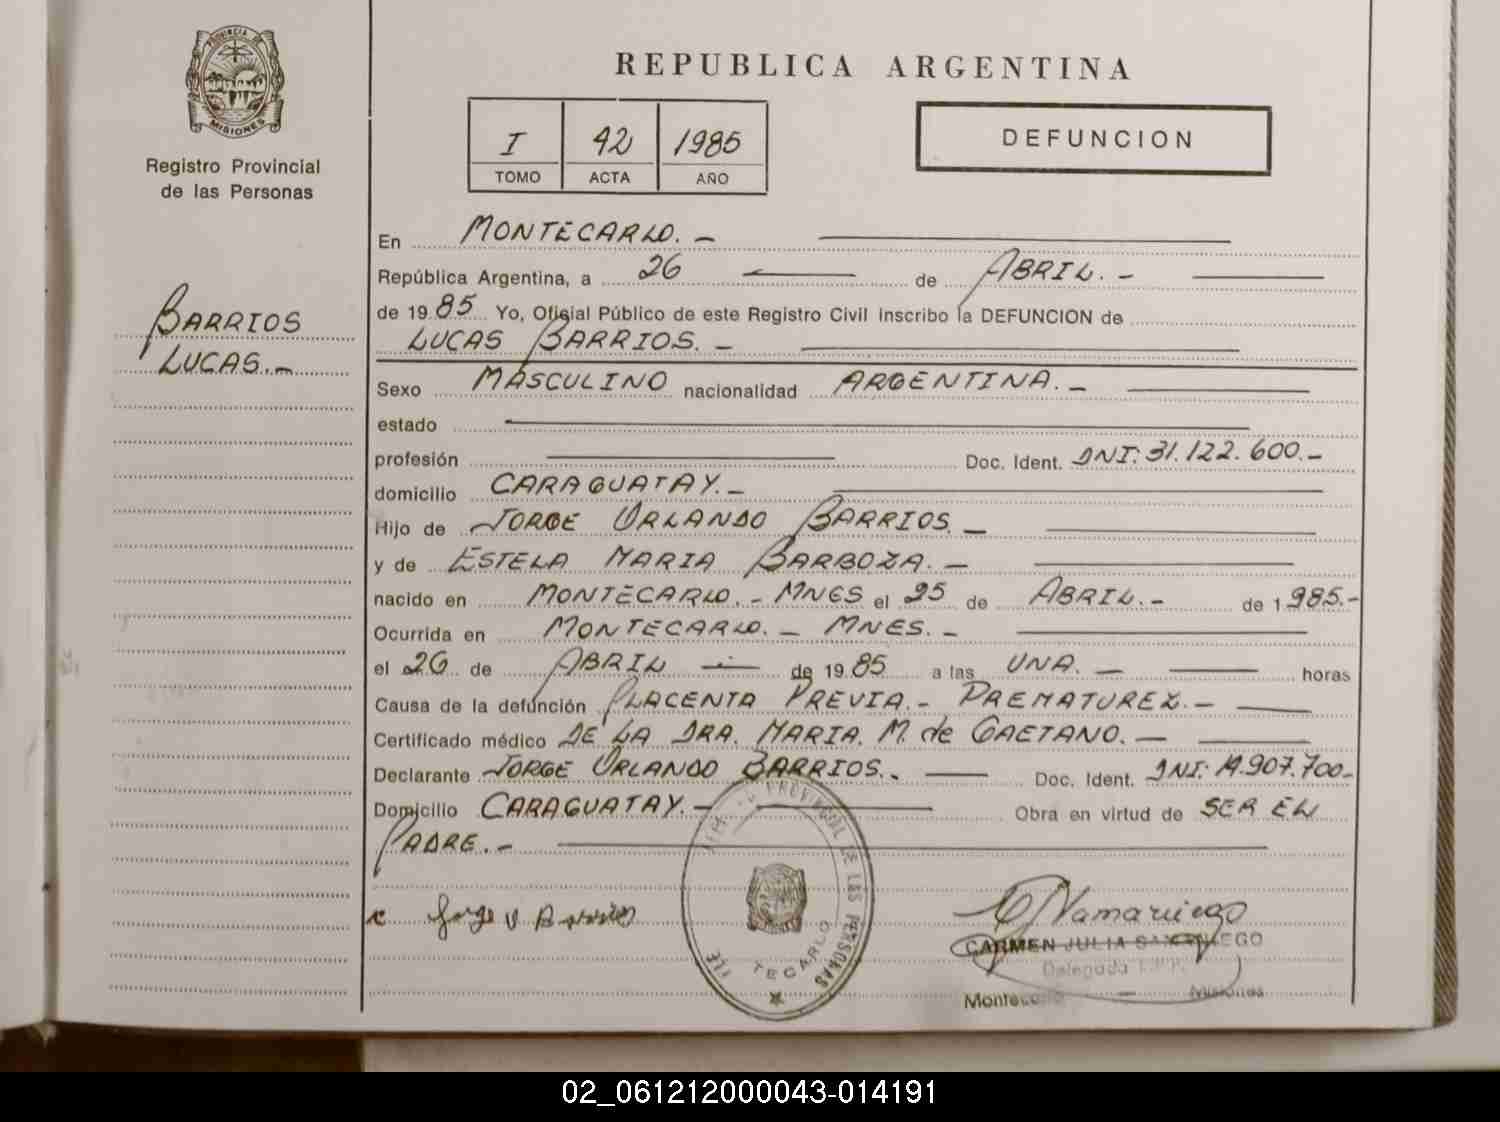 PROVINCIA DE
MISIONES
Registro Provincial
de las Personas
BARRIOS
LUCAS.-
REPUBLICA ARGENTINA
I 42 1985
TOMO ACTA AÑO
DEFUNCION
En MONTECARLO.-
República Argentina, a 26 de ABRIL.-
de 1985 Yo, Oficial Público de este Registro Civil inscribo la DEFUNCION de
LUCAS BARRIOS.-
Sexo MASCULINO nacionalidad ARGENTINA.-
estado
profesión Doc. Ident. DNI: 31.122.600.-
domicilio CARAGUATAY.-
Hijo de JORGE ORLANDO BARRIOS.-
y de ESTELA MARIA BARBOZA.-
nacido en MONTECARLO.- MNES el 25 de ABRIL.- de 1985.-
Ocurrida en MONTECARLO.- MNES.-
el 26 de ABRIL de 1985 a las UNA.- horas
Causa de la defunción PLACENTA PREVIA.- PREMATUREZ.-
Certificado médico DE LA DRA. MARIA. M. de GAETANO.-
Declarante JORGE ORLANDO BARRIOS.- Doc. Ident. DNI: 14.907.700-
Domicilio CARAGUATAY.- Obra en virtud de SER EL
PADRE.-
Jorge O Barrios
PROVINCIAL DE LAS PERSONAS
TECARLO
CARMEN JULIA
Delegada
Misiones
02_061212000043-014191